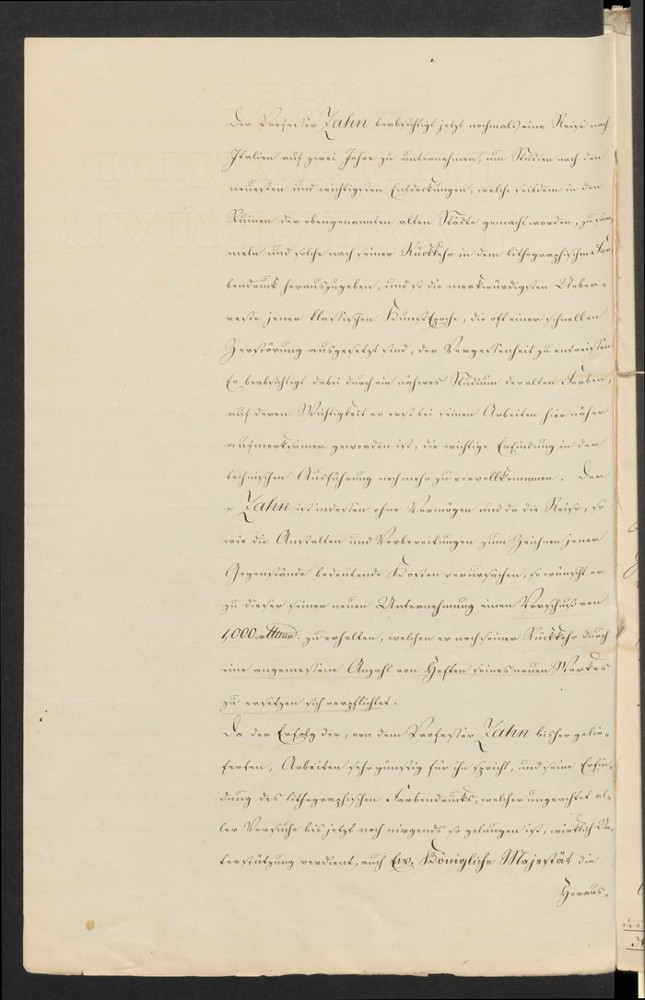 Der Professor Zahn beabsichtigt jetzt nochmals eine Reise nach
Italien auf zwei Jahre zu unternehmen, um Studien nach den
neuesten und wichtigsten Entdeckungen, welche seitdem in den
Ruinen der obengenannten alten Städte gemacht worden, zu sam„
meln und solche nach seiner Rückkehr in dem lithographischen Far„
bendruck herauszugeben, und so die merkwürdigsten Ueber„
reste jener klassischen Kunst Epoche, die oft einer schnellen
Zerstörung ausgesetzt sind, der Vergessenheit zu entreissen.
Er beabsichtigt dabei durch ein näheres Studium der alten Farben,
auf deren Wichtigkeit er erst bei seinen Arbeiten hier näher
aufmerksamer geworden ist, die wichtige Erfindung in der
technischen Ausführung noch mehr zu vervollkommnen. Der
Zahn ist indessen ohne Vermögen und da die Reise, so
wie die Anstalten und Vorbereitungen zum Zeichnen jener
Gegenstände bedeutende Kosten verursachen, so wünscht er
zu dieser seiner neuen Unternehmung einen Vorschuß von
1,000 zu erhalten, welchen er nach seiner Rückkehr durch
eine angemessene Anzahl von Heften seines neuen Werkes
zu ersetzen sich verpflichtet.
Da der Erfolg der, von dem Professor Zahn bisher gelie„
ferten, Arbeiten sehr günstig für ihn spricht, und seine Erfin„
dung des lithographischen Farbendrucks, welcher ungeachtet al„
ler Versuche bis jetzt noch nirgends so gelungen ist, wirklich Un„
terstützung verdient, auch Ew. Königliche Majestät die
Heraus„